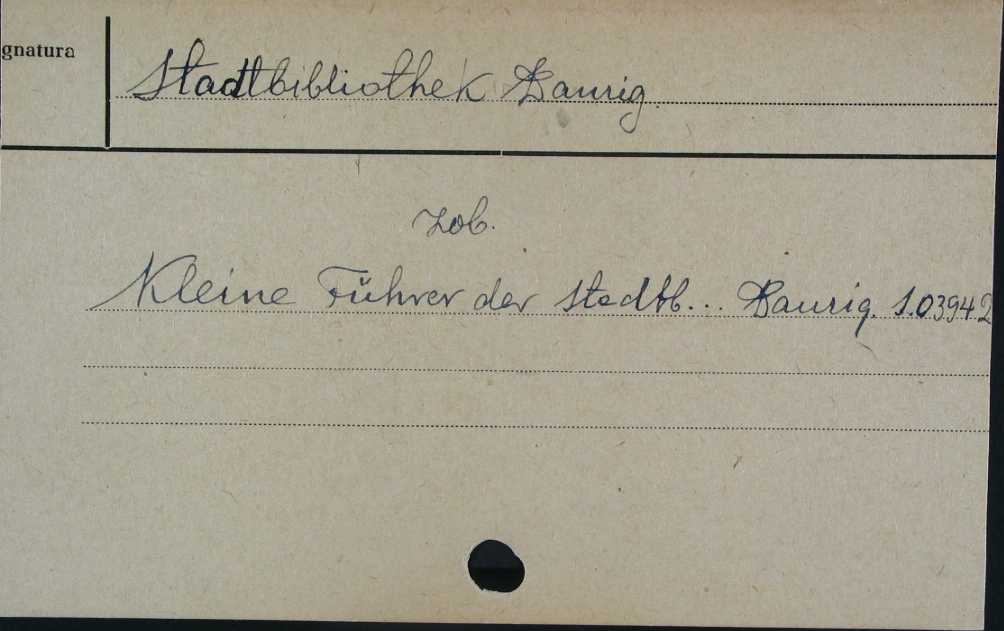 gnatura
Stadtbibliothek Danzig
Zob.
Kleine Führer der Stadtb... Danzig. 1.03942